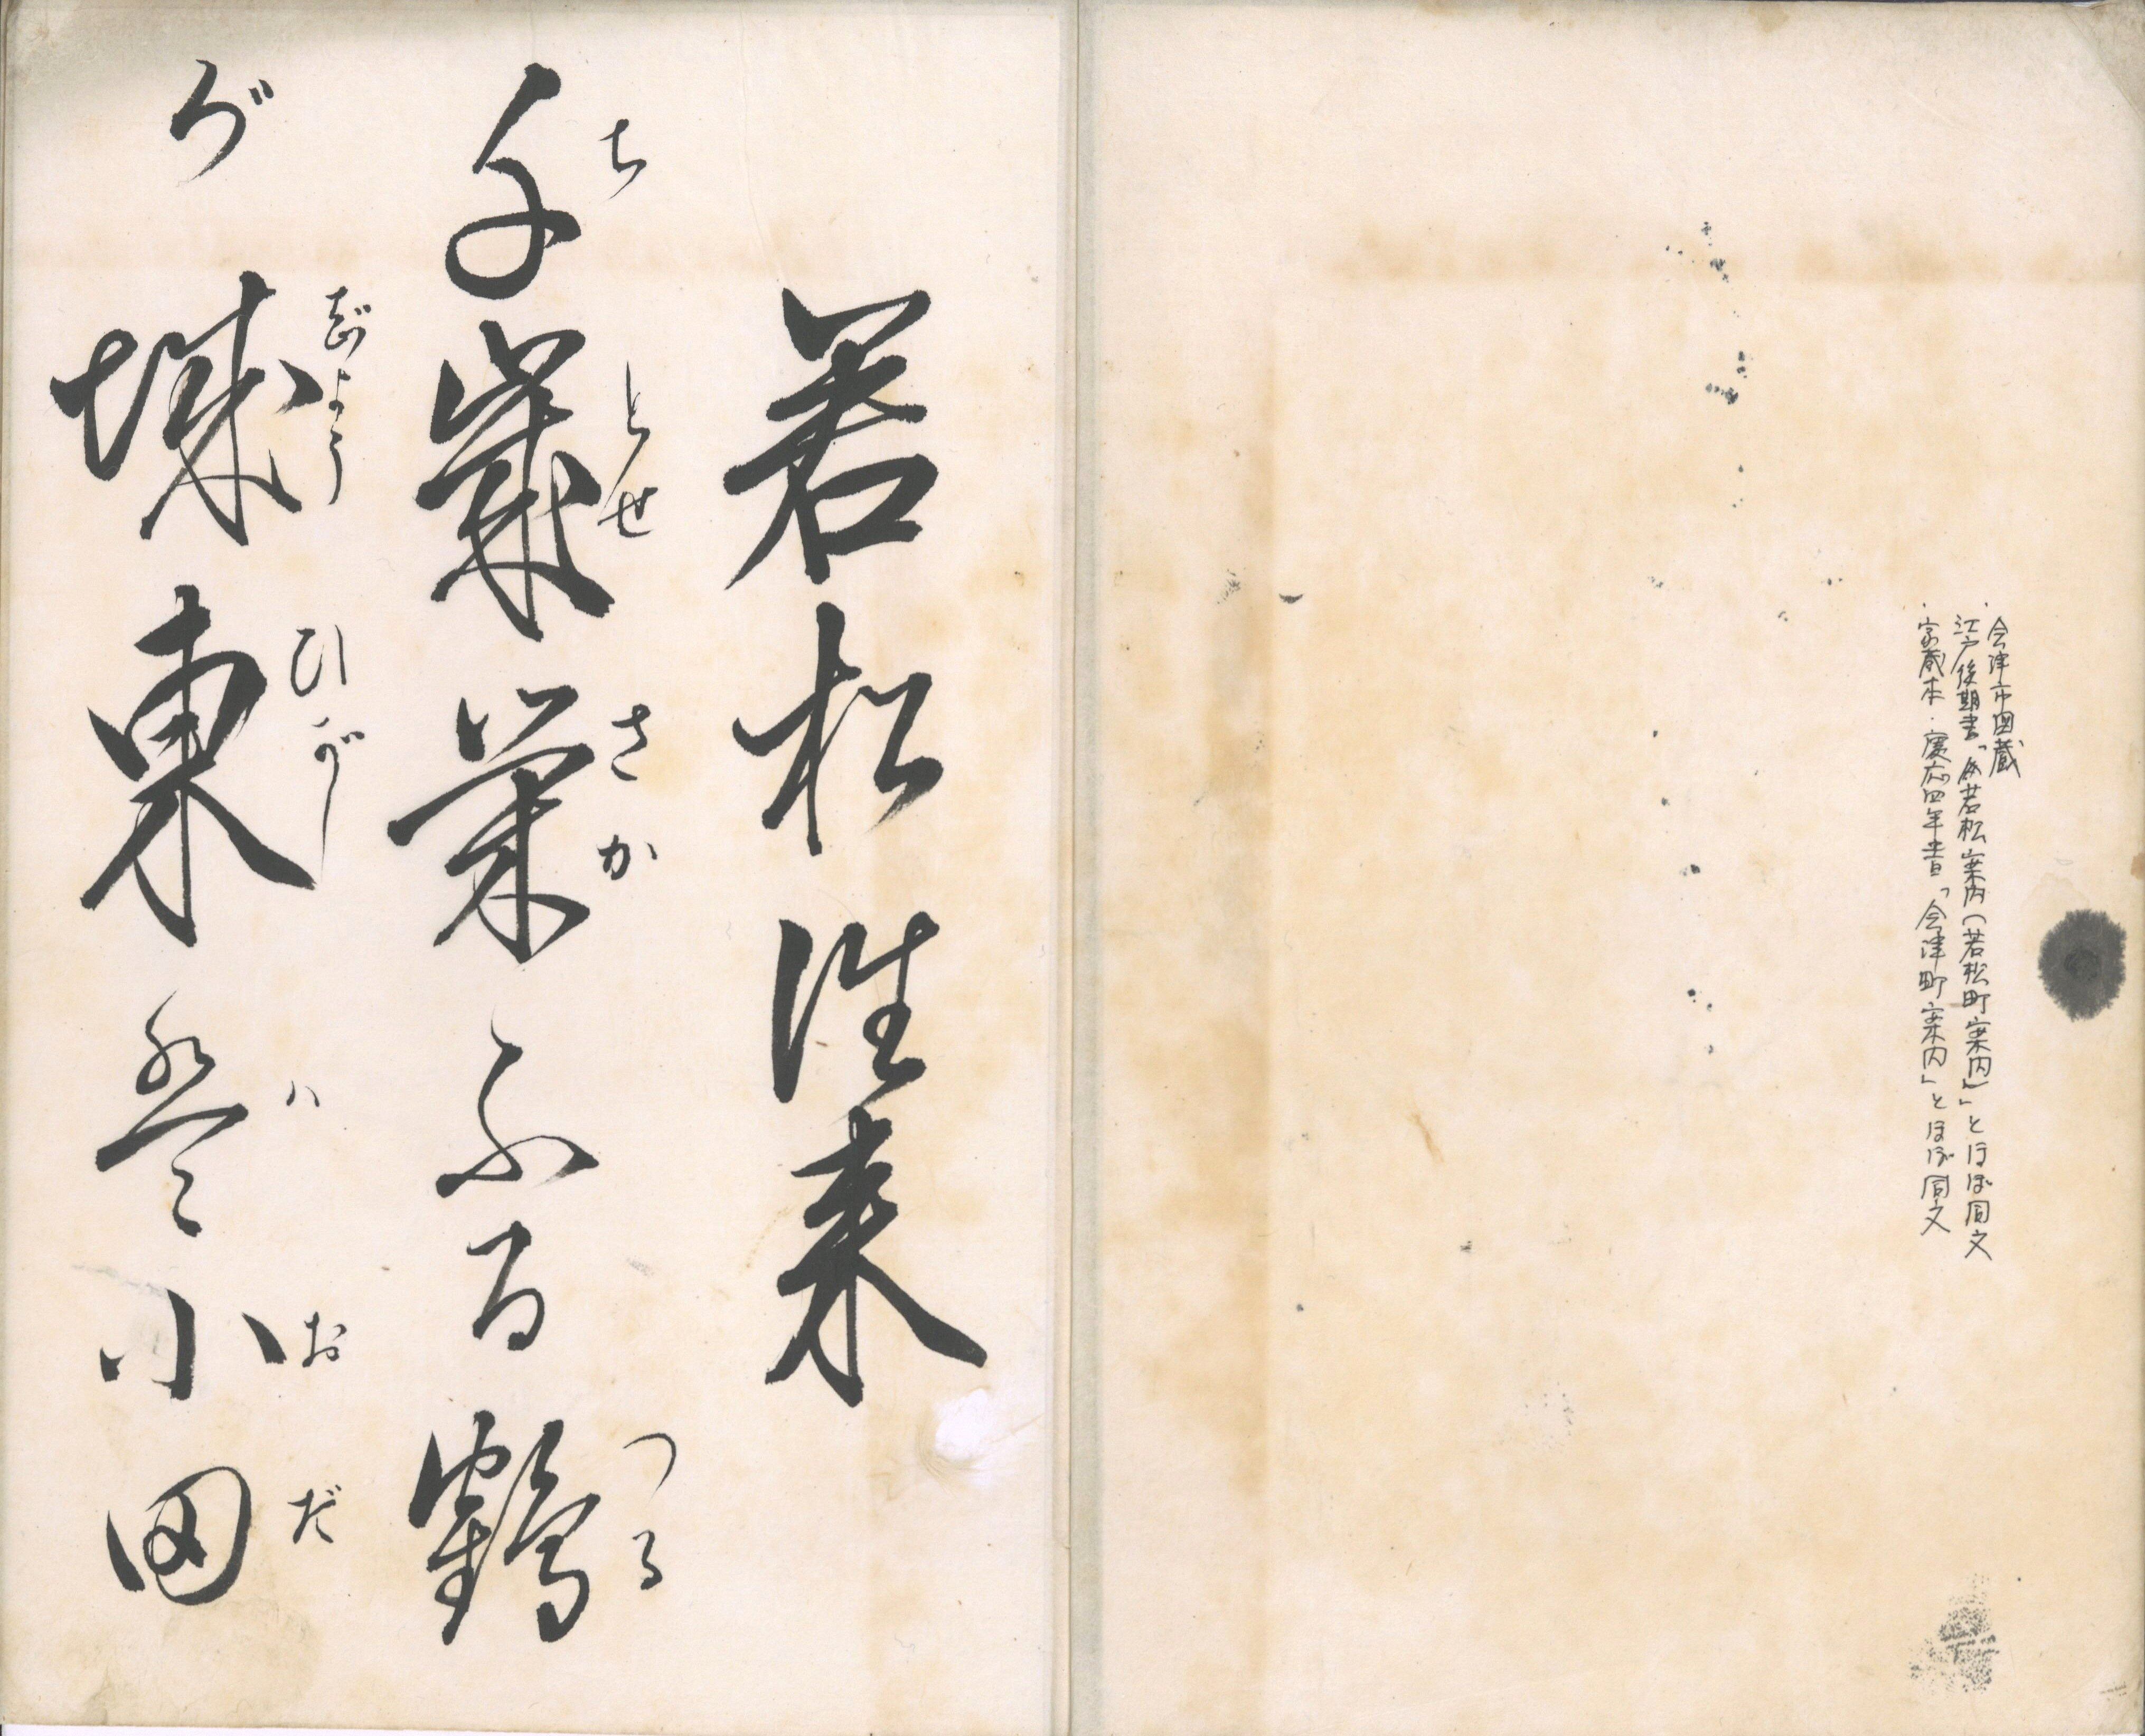 ・会津市図蔵
江戸後期書「会若松案内(若松町案内)」とほぼ同文
・家蔵本・慶応四年書「会津町案内」とほぼ同文
若松往来
千歳栄ふる鶴
ちとせさかつる
が城東は小田
じょうひがしハおだ